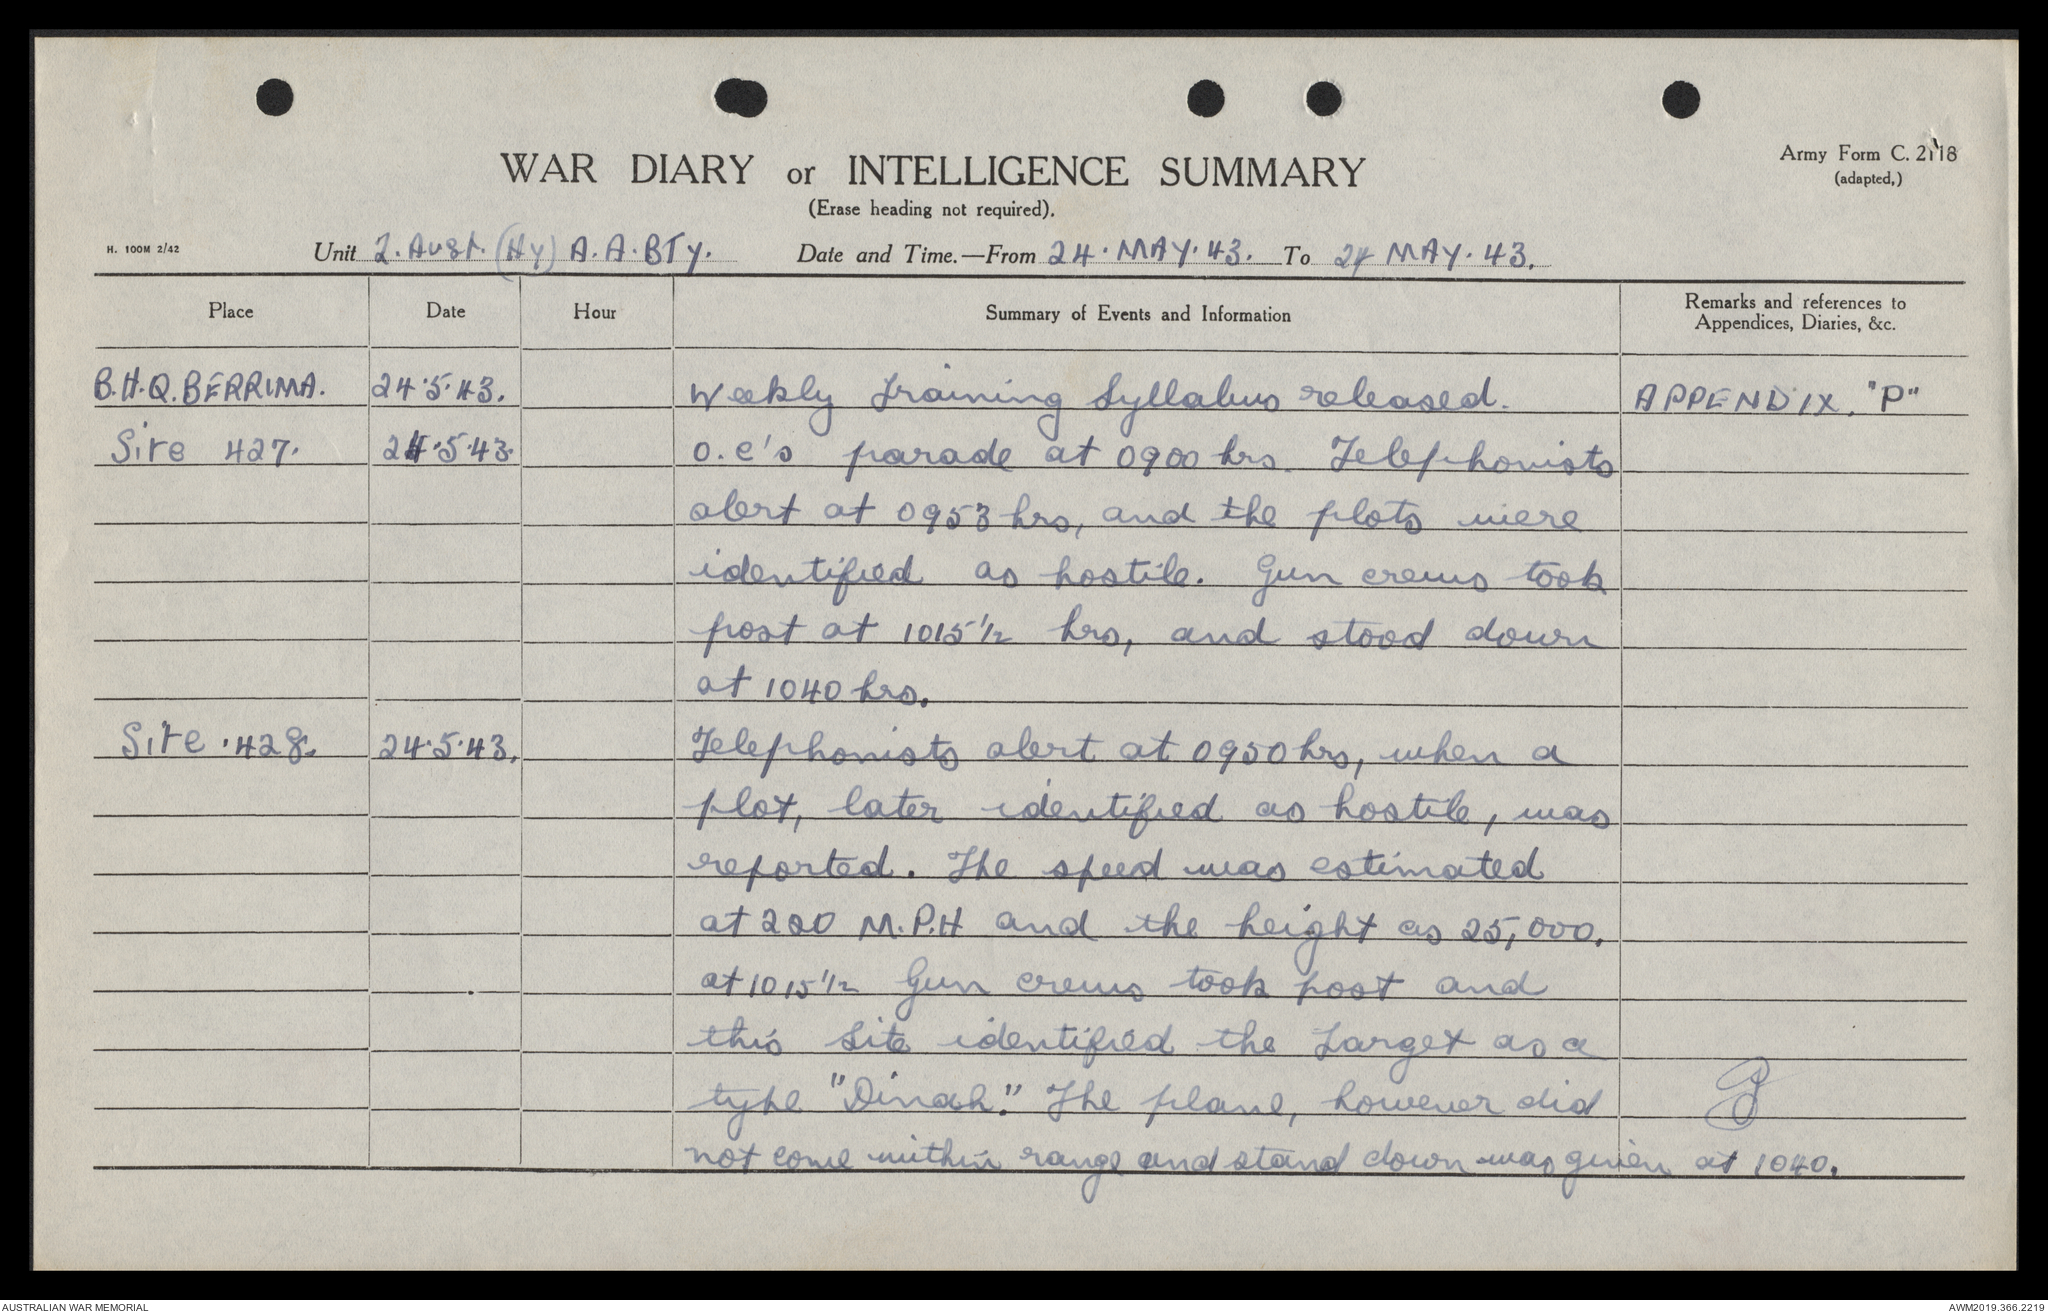 WAR DIARY or INTELLIGENCE SUMMARY
(Erase heading not required).
Army Form C. 2118
(adapted,)
H. 100M 2/42
Unit 2. Aust. (Hy) A.A. BTy. Date and Time.—From 24. MAY. 43. To 24 MAY. 43.
Place Date Hour Summary of Events and Information Remarks and references to
Appendices, Diaries, &c.
B.H.Q. BERRIMA. 24.5.43. Weekly Training Syllabus released. APPENDIX. "P"
Site 427. 24.5.43. O.C's parade at 0900 hrs. Telephonists
alert at 0953 hrs, and the plots were
identified as hostile. Gun crews took
post at 1015½ hrs, and stood down
at 1040 hrs.
Site 428. 24.5.43. Telephonists alert at 0950 hrs, when a
plot, later identified as hostile, was
reported. The speed was estimated
at 200 M.P.H and the height as 25,000.
at 1015½ Gun crews took post and
this Site identified the Target as a
type "Dinah." The plane, however did
not come within range and stand down was given at 1040.
AUSTRALIAN WAR MEMORIAL
AWM2019.366.2219